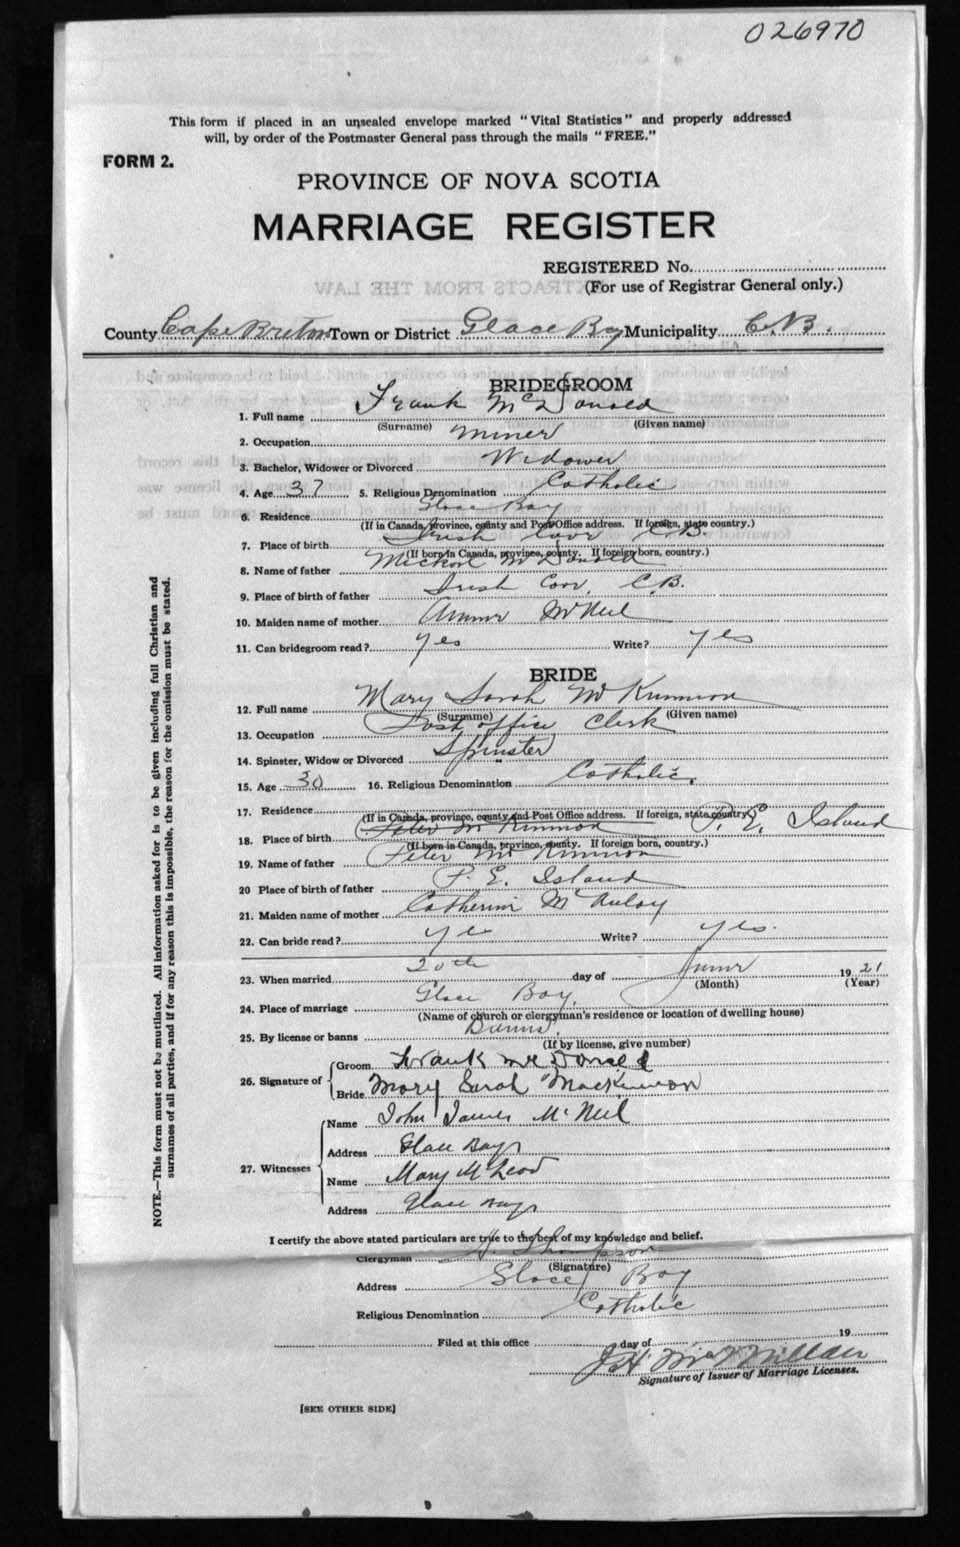 026970
This form if placed in an unsealed envelope marked "Vital Statistics" and properly addressed
will, by order of the Postmaster General pass through the mails "FREE."
FORM 2.
PROVINCE OF NOVA SCOTIA
MARRIAGE REGISTER
REGISTERED No.
(For use of Registrar General only.)
County Cape Breton Town or District Glace Bay Municipality C.B.
BRIDEGROOM
1. Full name Frank McDonald
(Surname) (Given name)
2. Occupation Miner
3. Bachelor, Widower or Divorced Widower
4. Age 37 5. Religious Denomination Catholic
6. Residence Glace Bay
(If in Canada, province, county and Post Office address. If foreign, state country.)
7. Place of birth Irish Cove C.B.
(If born in Canada, province, county. If foreign born, country.)
8. Name of father McDonald
9. Place of birth of father Irish Cove, C.B.
10. Maiden name of mother McNeil
11. Can bridegroom read? yes Write? yes
BRIDE
12. Full name Mary Sarah McKinnon
(Surname) (Given name)
13. Occupation Post office Clerk
14. Spinster, Widow or Divorced Spinster
15. Age 30 16. Religious Denomination Catholic.
17. Residence
(If in Canada, province, county and Post Office address. If foreign, state country.)
18. Place of birth Peter McKinnon P. E. Island
(If born in Canada, province, county. If foreign born, country.)
19. Name of father Peter McKinnon
20 Place of birth of father P. E. Island
21. Maiden name of mother Catherine McAulay
22. Can bride read? yes Write? yes.
23. When married 20th day of June 1921
(Month) (Year)
24. Place of marriage Glace Bay,
(Name of church or clergyman's residence or location of dwelling house)
25. By license or banns Banns.
(If by license, give number)
26. Signature of
Groom Frank McDonald
Bride Mary Sarah MacKinnon
27. Witnesses
Name John James McNeil
Address Glace Bay
Name Mary McLeod
Address Glace Bay
I certify the above stated particulars are true to the best of my knowledge and belief.
Clergyman Thompson
(Signature)
Address Glace Bay
Religious Denomination Catholic
Filed at this office day of 19
J H McMillan
Signature of Issuer of Marriage Licenses.
[SEE OTHER SIDE]
NOTE.—This form must not be mutilated. All information asked for is to be given including full Christian and
surnames of all parties, and if for any reason this is impossible, the reason for the omission must be stated.